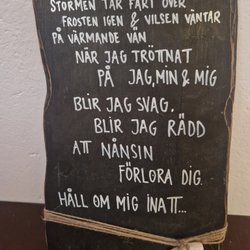 STORMEN TAR FART ÖVER
FROSTEN IGEN & VILSEN VÄNTAR
PÅ VÄRMANDE VÄN
NÄR JAG TRÖTTNAT
PÅ JAG, MIN & MIG
BLIR JAG SVAG.
BLIR JAG RÄDD
ATT NÅNSIN
FÖRLORA DIG.
HÅLL OM MIG INATT...